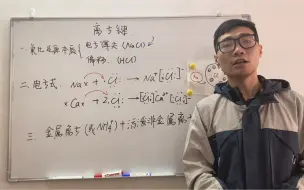 离子键
电子得失 (NaCl)
(HCl)
二.电子式: Na× + ·Cl: → Na⁺[:Cl:]⁻
×Ca× + 2·Cl: → [:Cl:]⁻Ca²⁺[:Cl:]⁻
三. 金属离子 (或NH₄⁺) + 活泼非金属离子